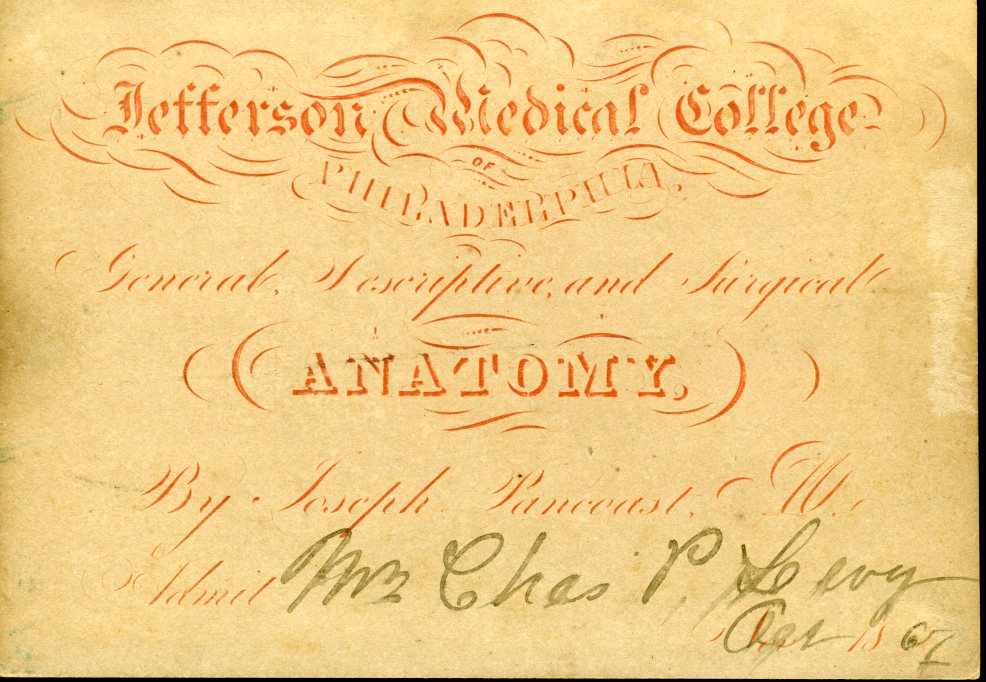 Jefferson Medical College
OF
PHILADELPHIA,
General, Descriptive, and Surgical
ANATOMY,
By Joseph Pancoast, M.
Admit Mr Chas P. Levy
Oct 1867